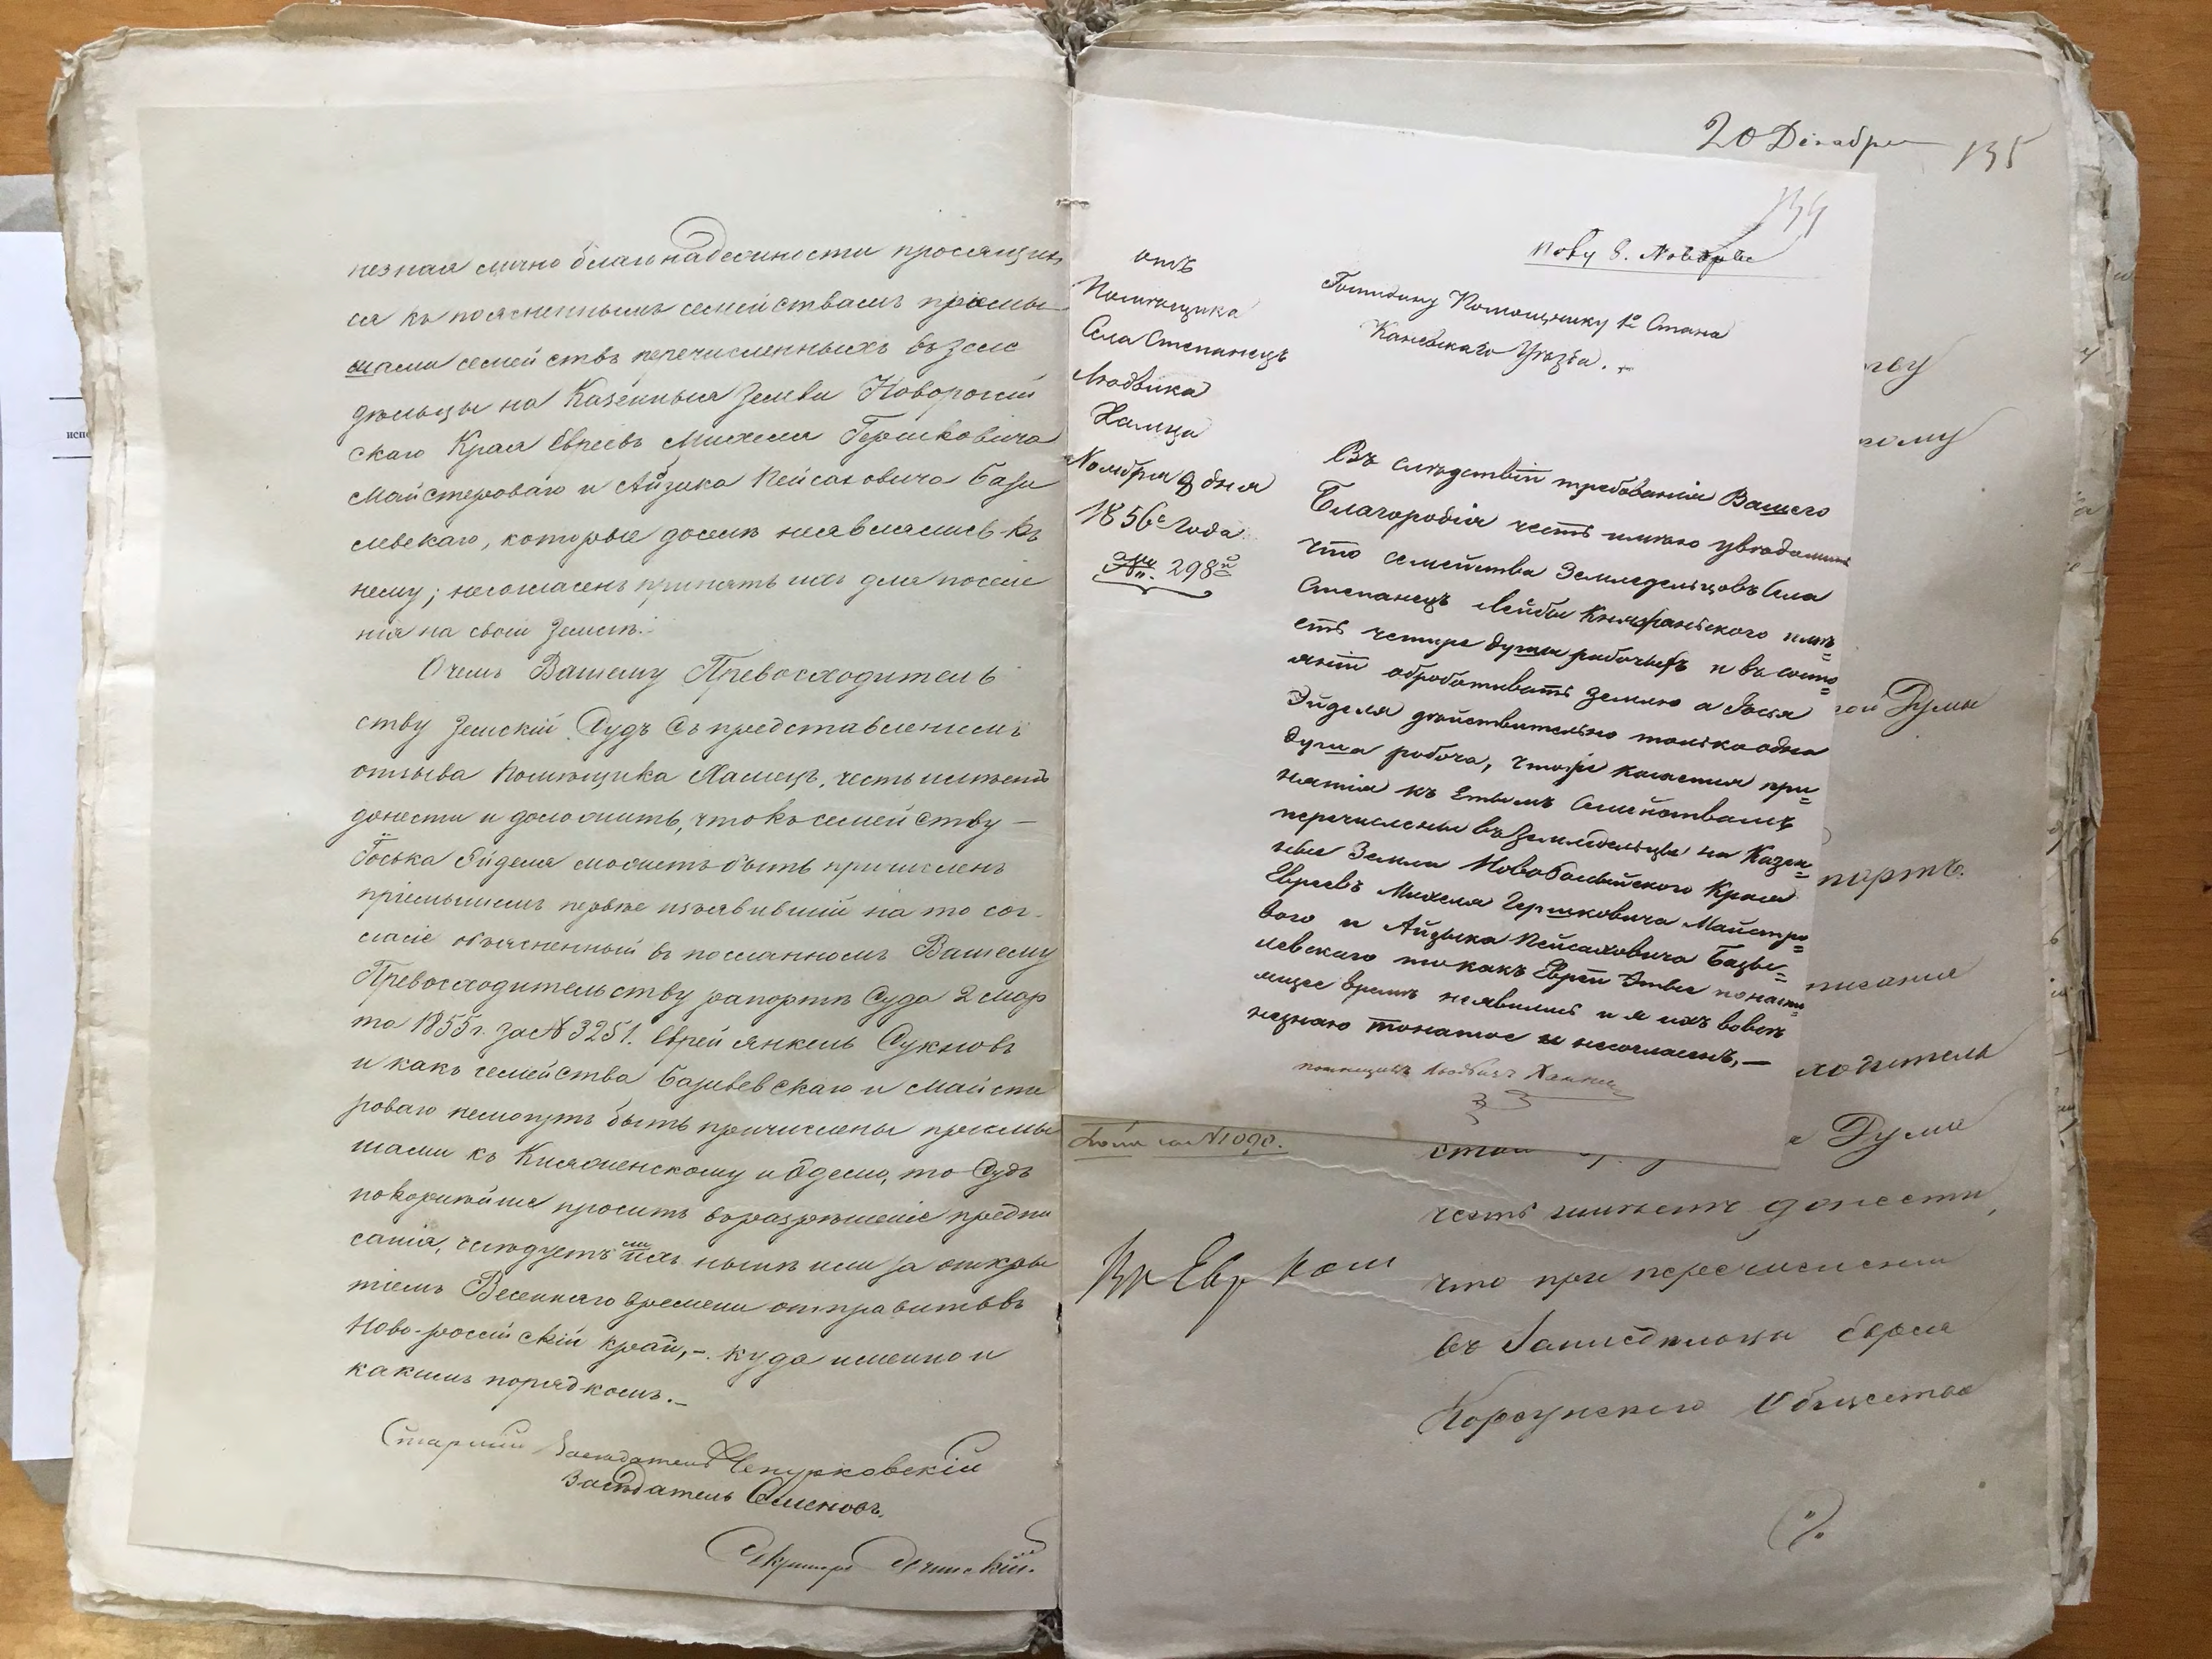 незная лично благонадежности просящих
ся къ поясненнымъ семействамъ пріемы
шами семействъ перечисленныхъ въ земле
дѣльцы на Казенныя Земли Новороссій
скаго Края Евреевъ Михеля Гершковича
Майстероваго и Айзика Пейсаховича Бази
левскаго, которые доселѣ неявлялись къ
нему; несогласенъ принять ихъ для поселе
нія на своей Землѣ.
Очемъ Вашему Превосходитель
ству Земскій Судъ Съ представленіемъ
отзыва Помѣщика Хамецъ, честь имѣетъ
донести и доложить, что къ семейству
Іоська Эйделя можетъ быть причисленъ
пріемышемъ первѣе изъявившій на то сог-
ласіе объясненный въ посланномъ Вашему
Превосходительству рапортѣ Суда 2 мар
та 1855 г. за № 3251. Еврей Янкель Сукновъ
и какъ семейства Базилевскаго и Майсте
роваго немогутъ быть причислены пріемы
шами къ Княжанскому и Эделю, то Судъ
покорнѣйше проситъ въ разрѣшеніе предпи
санія, слѣдуетъ ли ихъ нынѣ или за откры
тіемъ Весеннаго времени отправить въ
Ново-россійскій край,-. куда именно и
какимъ порядкомъ.-
Старшій Засѣдатель Чепурковскій
Засѣдатель Семеновъ.
Секретарь
20 Декабря 135
134
Пову 8. Новабре
отъ
Помѣщика
Села Степанецъ
Людвика
Хамца
Ноября 8 дня
1856 года
№ 298
Господину Помощнику 1º Стана
Каневскаго Уѣзда.
Въ слѣдствіи требованія Вашего
Благородія честь имѣю увѣдомить
что семейства Земледельцовъ Села
Степанецъ Лейбы Княжанского имѣ=
етъ четыре души рабочыхъ и въ состо=
яніи обработивать землю а Іосья
Эйделя дѣйствительно только одна
душа робоча, что же касается при=
нятія къ Етымъ Семействамъ
перечислены въ Земледельцы на Казен=
ные Земли Новоросійского Края
Евреевъ Михеля Гершковича Майстро=
вого и Айзыка Пейсаховича Базы=
левского то какъ Евреи Этые понасто=
ящее время неявились и я ихъ вовсе
незнаю то на тое и несогласенъ,-
помещикъ Людвикъ Хамец
№ 1090.
портъ.
ой Думы
писанія
ходитель
Думы
честь имѣетъ донести,
что при перечисленіи
въ Земледѣльцы Еврея
Корсунскаго Общества